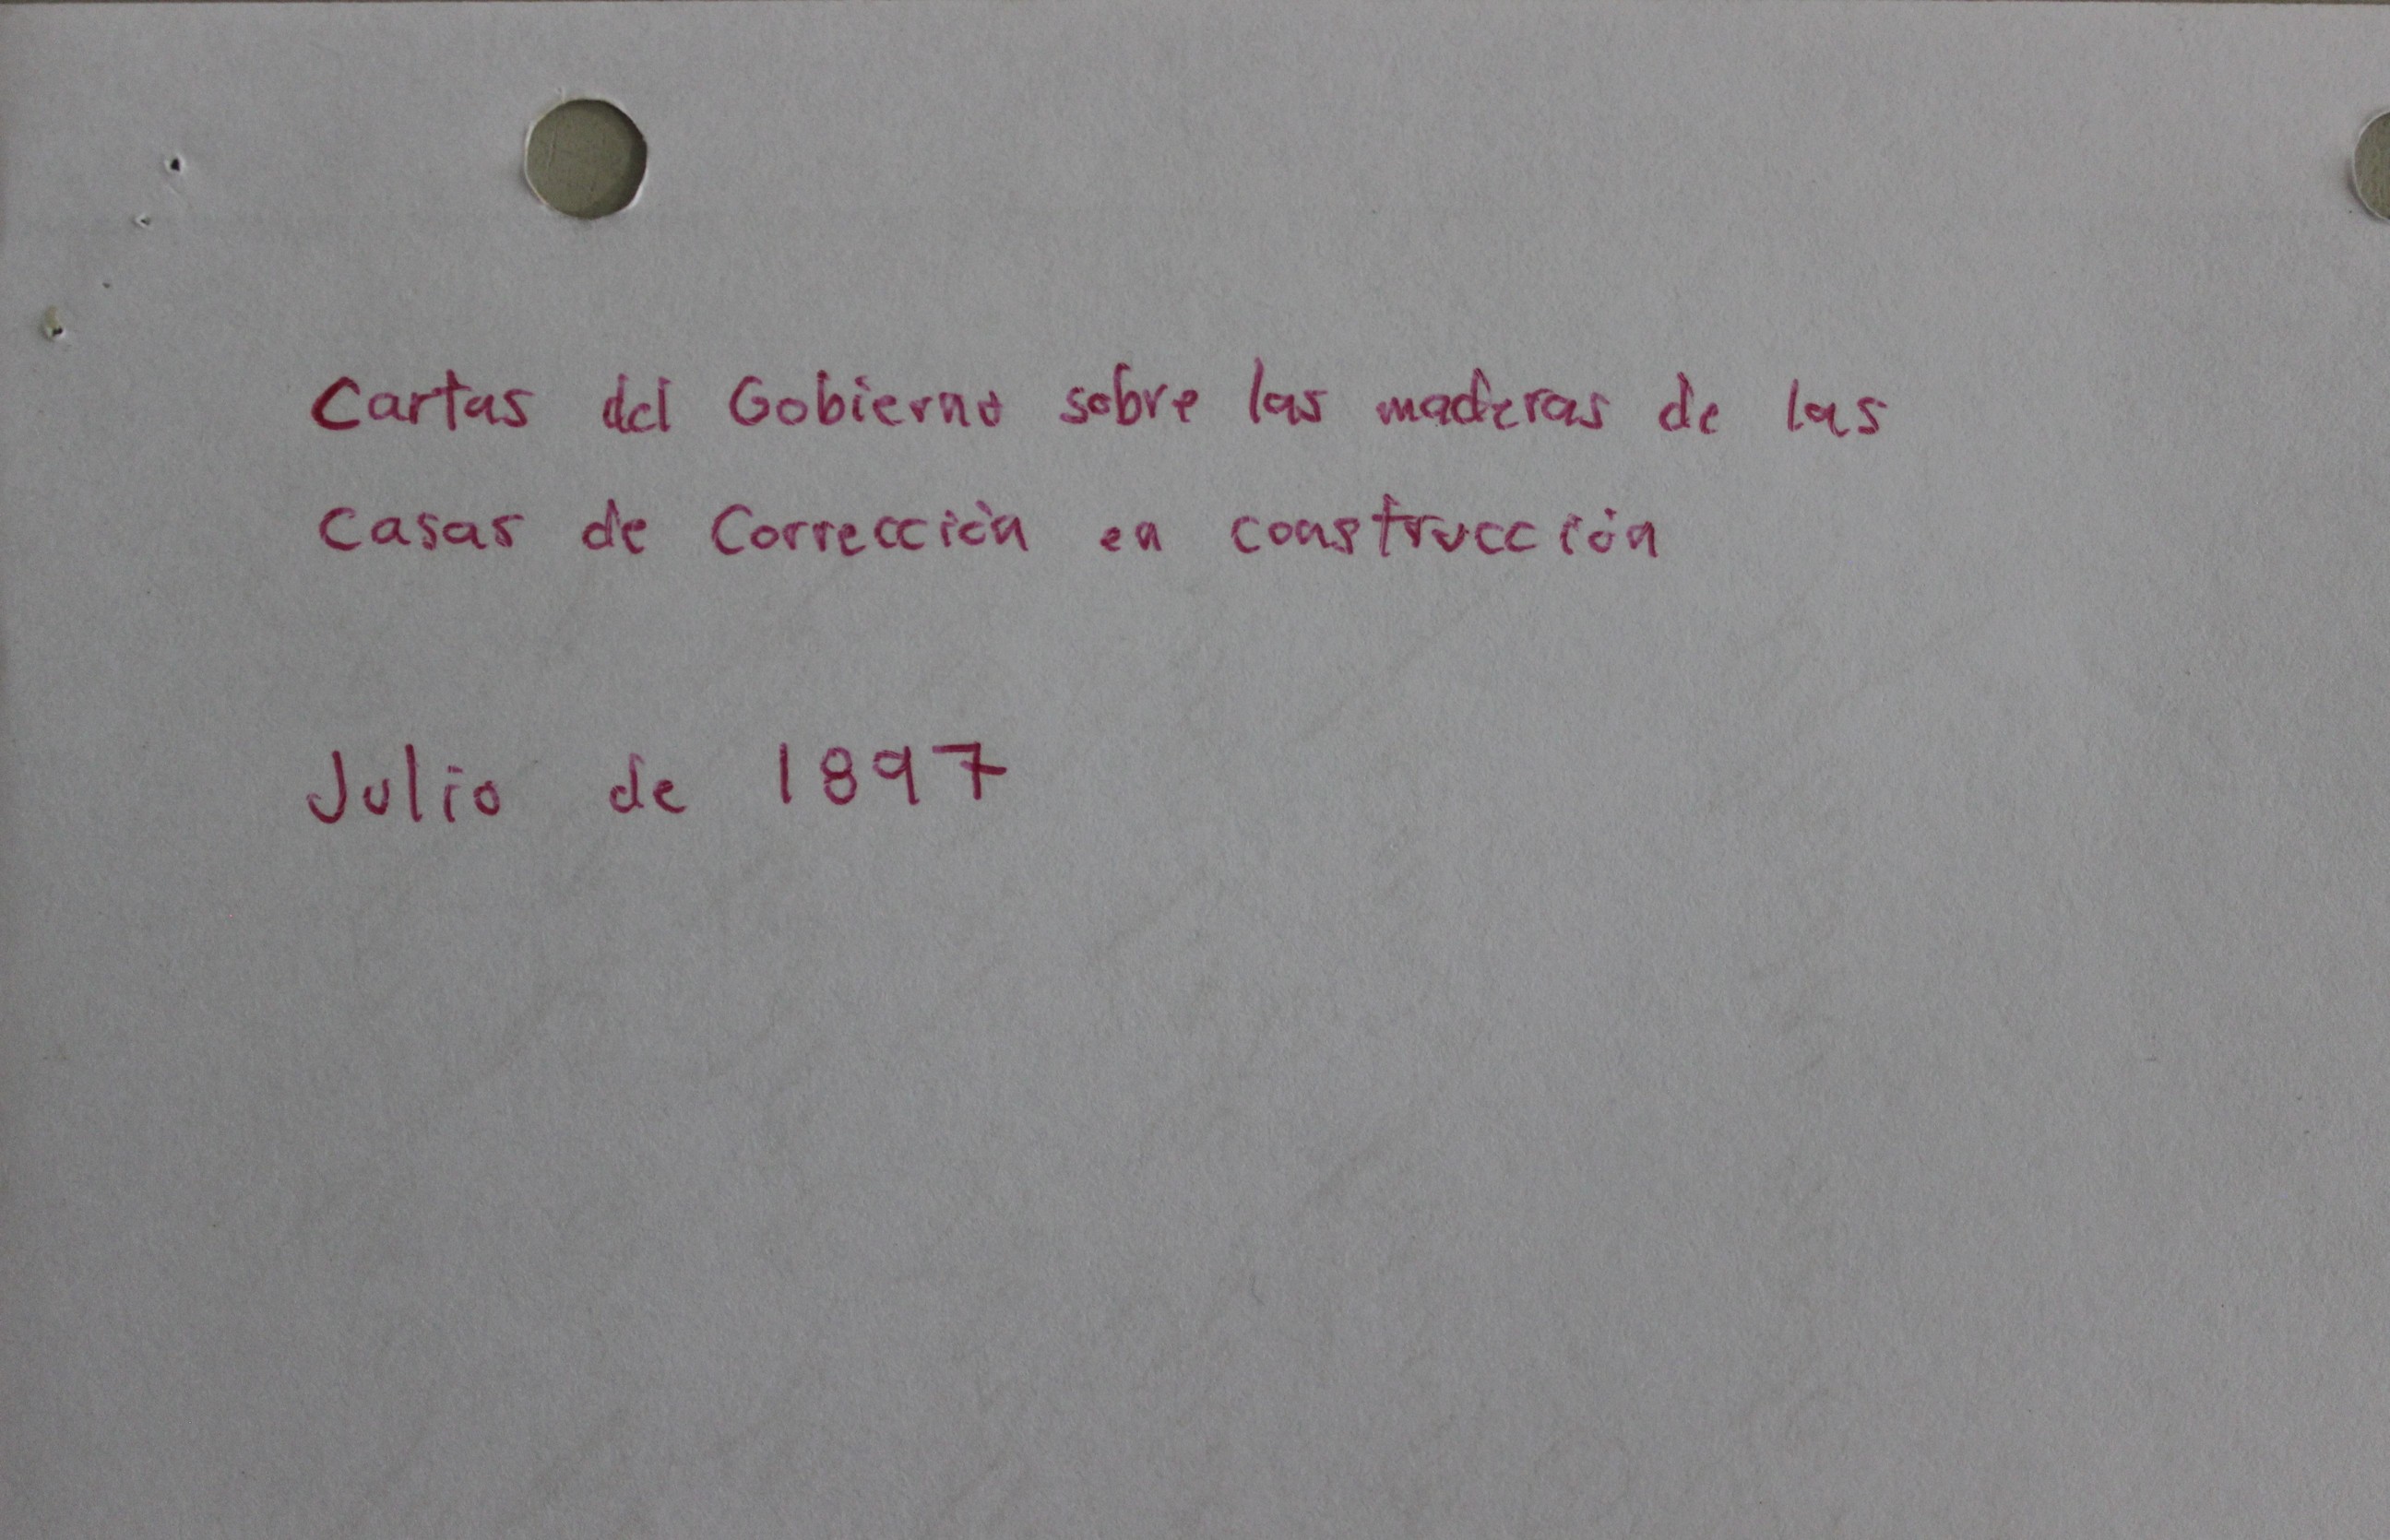 Cartas del Gobierno sobre las maderas de las
Casas de Corrección en construcción
Julio de 1897